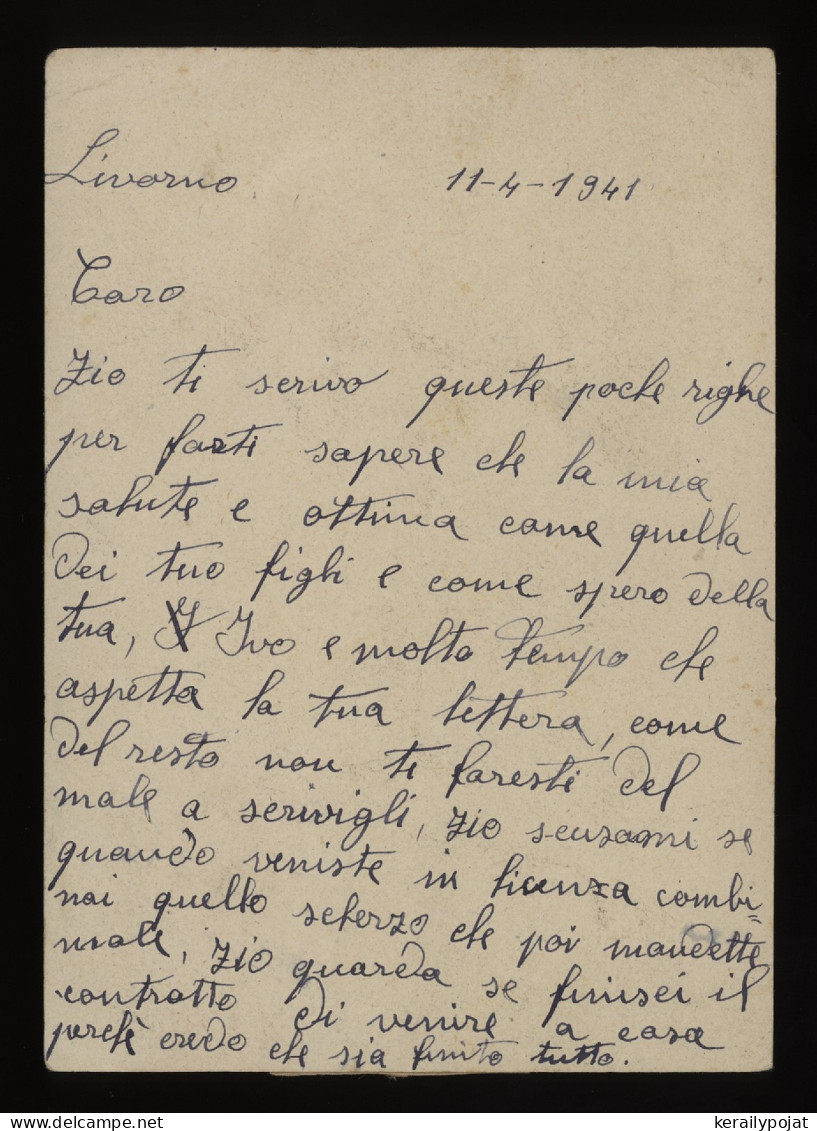 Livorno 11-4-1941
Caro
Zio ti scrivo queste poche righe
per farti sapere che la mia
salute e ottima come quella
dei tuo figli e come spero della
tua, Ivo e molto tempo che
aspetta la tua lettera, come
del resto non ti faresti del
male a scrivigli, zio scusami se
quando veniste in licenza combi=
nai quello scherzo che poi mandette
male, zio guarda se finisci il
contratto di venire a casa
perchè credo che sia finito tutto.
kerailypojat